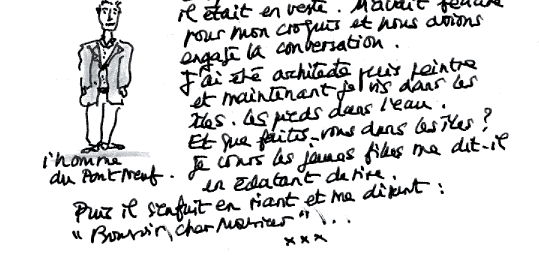 il était en veste. M'avait
pour mon croquis et nous avions
engagé la conversation.
J'ai été architecte puis peintre
et maintenant je vis dans les
îles. les pieds dans l'eau.
Et que faites-vous dans les îles ?
Je cours les jeunes filles me dit-il
en éclatant de rire.
l'homme
du Pont Neuf.
Puis il s'enfuit en riant et me disant :
"Bonsoir, cher Monsieur"...
xxx